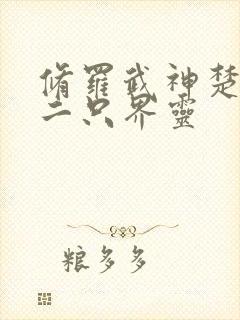 脩羅武神楚
二只界靈
粮多多